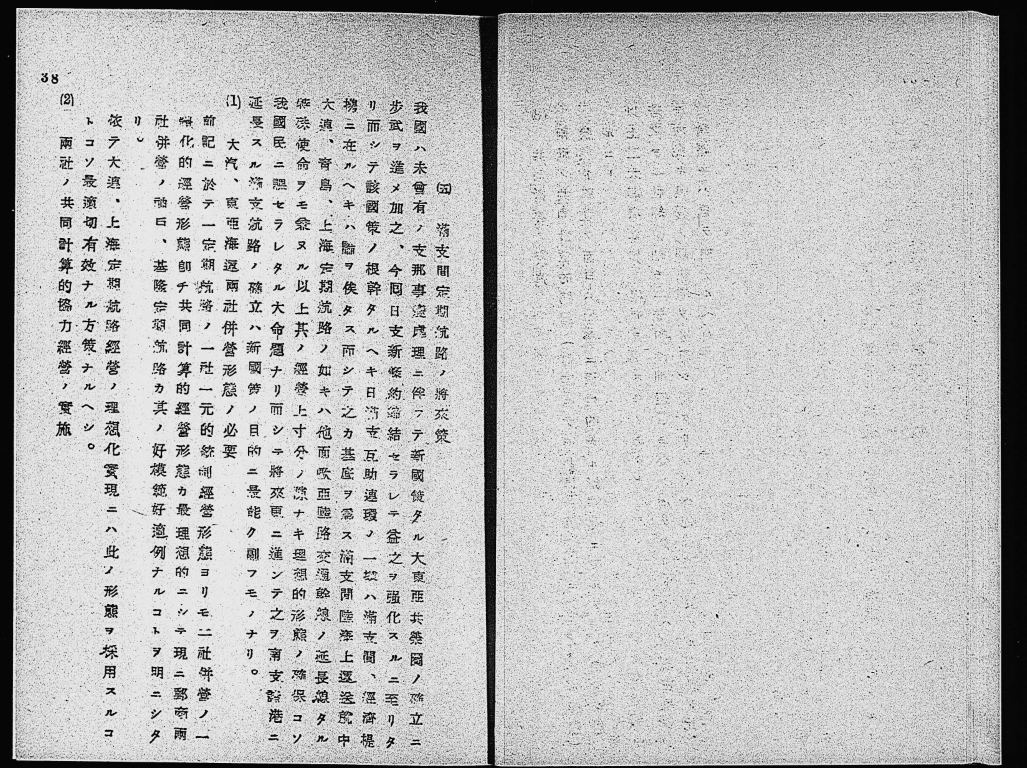 38
(五) 満支間定期航路ノ將來策
我國ハ未曾有ノ支那事変処理ニ伴フテ新國策タル大東亜共榮圏ノ確立ニ
歩武ヲ進メ加之、今囘日支新條約締結セラレテ益之ヲ强化スルニ至リタ
リ而シテ該國策ノ根幹タルヘキ日満支互助連環ノ一環ハ満支間、經濟提
携ニ在ルヘキハ論ヲ俟タス而シテ之カ基底ヲ爲ス満支間陸海上運送就中
大連、青島、上海定期航路ノ如キハ他面歐亜陸路交通幹線ノ延長線タル
特殊使命ヲモ兼ヌル以上其ノ經營上寸分ノ隙ナキ理想的形態ノ確保コソ
我國民ニ課セラレタル大命題ナリ而シテ將來更ニ進ンテ之ヲ南支諸港ニ
延長スル満支航路ノ確立ハ新國策ノ目的ニ最能ク副フモノナリ。
(1) 大汽、東亜海運兩社併營形態ノ必要
前記ニ於テ一定期航路ノ一社一元的統制經營形態ヨリモ二社併營ノ一
元化的經營形態卽チ共同計算的經營形態カ最理想的ニシテ現ニ郵商兩
社併營ノ神戸、基隆定期航路カ其ノ好模範好適例ナルコトヲ明ニシタ
リ。
依テ大連、上海定期航路經營ノ理想化實現ニハ此ノ形態ヲ採用スルコ
トコソ最適切有效ナル方策ナルヘシ。
(2) 兩社ノ共同計算的協力經營ノ實施